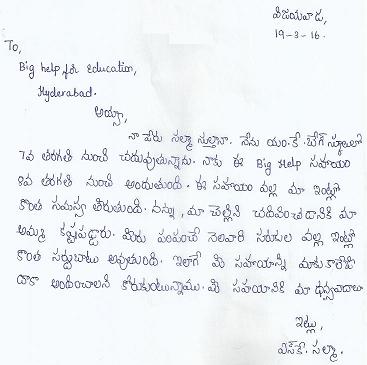 విజయవాడ,
19-3-16.
To,
Big help for Education,
Hyderabad.
అయ్యా,
నా పేరు సల్మా సుల్తానా. నేను యం.కే.బేగ్ స్కూలులో
7వ తరగతి నుంచి చదువుతున్నాను. నాకు ఈ Big Help సహాయం
8వ తరగతి నుంచి అందుతుంది. ఈ సహాయం వల్ల మా ఇంట్లో
కొంత సమస్య తీరుతుంది. నన్ను, మా చెల్లిని చదివించడానికి మా
అమ్మ కష్టపడ్డారు. మీరు పంపించే నెలవారి సరుకుల వల్ల ఇంట్లో
కొంత సర్దుబాటు అవుతుంది. ఇలాగే మీ సహాయాన్ని మాకు
దాకా అందించాలని కోరుకుంటున్నాము. మీ సహాయానికి మా ధన్యవాదాలు
ఇట్లు,
ఎస్.కే. సల్మా.